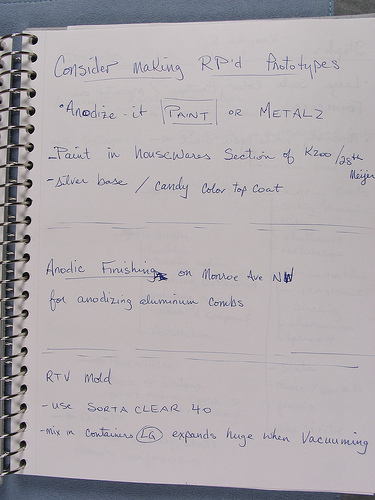 Consider making RP'd Prototypes
•Anodize-it PAINT or METALZ
-Paint in housewares Section of K200/28th Meijer
-silver base / candy color top coat
Anodic Finishing on Monroe Ave NW
for anodizing aluminum combs
RTV Mold
-use SORTA CLEAR 40
-mix in containers LG expands huge when Vacuuming